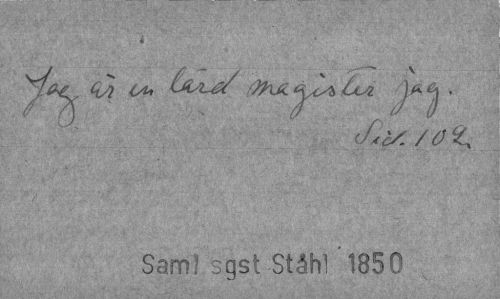 Jag är en lärd magister jag.
Sid. 102.
Saml sgst Ståhl 1850